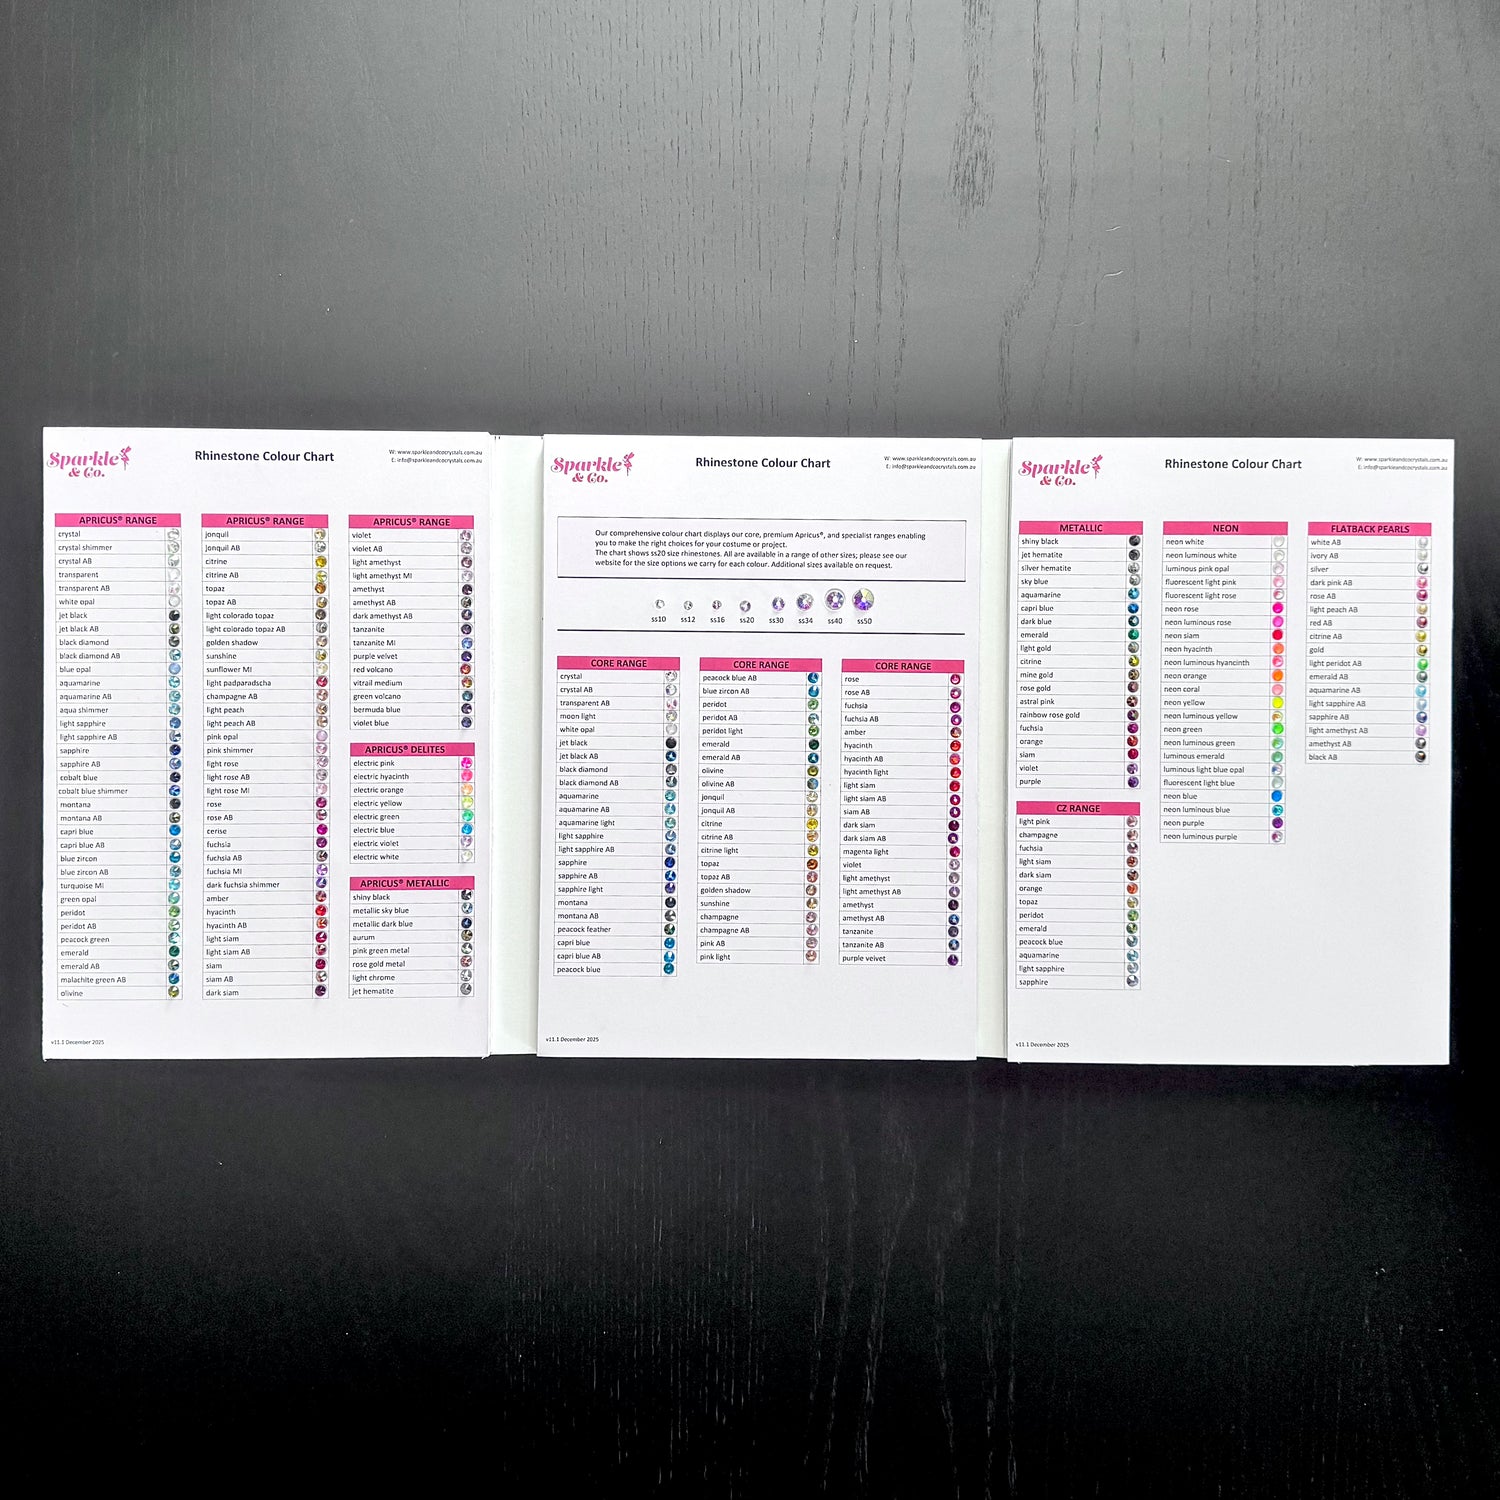 Sparkle
& Co.
Rhinestone Colour Chart
W: www.sparkleandcocrystals.com.au
E: info@sparkleandcocrystals.com.au
APRICUS® RANGE
crystal
crystal shimmer
crystal AB
transparent
transparent AB
white opal
jet black
jet black AB
black diamond
black diamond AB
blue opal
aquamarine
aquamarine AB
aqua shimmer
light sapphire
light sapphire AB
sapphire
sapphire AB
cobalt blue
cobalt blue shimmer
montana
montana AB
capri blue
capri blue AB
blue zircon
blue zircon AB
turquoise MI
green opal
peridot
peridot AB
peacock green
emerald
emerald AB
malachite green AB
olivine
APRICUS® RANGE
jonquil
jonquil AB
citrine
citrine AB
topaz
topaz AB
light colorado topaz
light colorado topaz AB
golden shadow
sunshine
sunflower MI
light padparadscha
champagne AB
light peach
light peach AB
pink opal
pink shimmer
light rose
light rose AB
light rose MI
rose
rose AB
cerise
fuchsia
fuchsia AB
fuchsia MI
dark fuchsia shimmer
amber
hyacinth
hyacinth AB
light siam
light siam AB
siam
siam AB
dark siam
APRICUS® RANGE
violet
violet AB
light amethyst
light amethyst MI
amethyst
amethyst AB
dark amethyst AB
tanzanite
tanzanite MI
purple velvet
red volcano
vitrail medium
green volcano
bermuda blue
violet blue
APRICUS® DELITES
electric pink
electric hyacinth
electric orange
electric yellow
electric green
electric blue
electric violet
electric white
APRICUS® METALLIC
shiny black
metallic sky blue
metallic dark blue
aurum
pink green metal
rose gold metal
light chrome
jet hematite
v11.1 December 2025
Sparkle
& Co.
Rhinestone Colour Chart
W: www.sparkleandcocrystals.com.au
E: info@sparkleandcocrystals.com.au
Our comprehensive colour chart displays our core, premium Apricus®, and specialist ranges enabling
you to make the right choices for your costume or project.
The chart shows ss20 size rhinestones. All are available in a range of other sizes; please see our
website for the size options we carry for each colour. Additional sizes available on request.
ss10 ss12 ss16 ss20 ss30 ss34 ss40 ss50
CORE RANGE
crystal
crystal AB
transparent AB
moon light
white opal
jet black
jet black AB
black diamond
black diamond AB
aquamarine
aquamarine AB
aquamarine light
light sapphire
light sapphire AB
sapphire
sapphire AB
sapphire light
montana
montana AB
peacock feather
capri blue
capri blue AB
peacock blue
CORE RANGE
peacock blue AB
blue zircon AB
peridot
peridot AB
peridot light
emerald
emerald AB
olivine
olivine AB
jonquil
jonquil AB
citrine
citrine AB
citrine light
topaz
topaz AB
golden shadow
sunshine
champagne
champagne AB
pink AB
pink light
CORE RANGE
rose
rose AB
fuchsia
fuchsia AB
amber
hyacinth
hyacinth AB
hyacinth light
light siam
light siam AB
siam AB
dark siam
dark siam AB
magenta light
violet
light amethyst
light amethyst AB
amethyst
amethyst AB
tanzanite
tanzanite AB
purple velvet
v11.1 December 2025
Sparkle
& Co.
Rhinestone Colour Chart
W: www.sparkleandcocrystals.com.au
E: info@sparkleandcocrystals.com.au
METALLIC
shiny black
jet hematite
silver hematite
sky blue
aquamarine
capri blue
dark blue
emerald
light gold
citrine
mine gold
rose gold
astral pink
rainbow rose gold
fuchsia
orange
siam
violet
purple
CZ RANGE
light pink
champagne
fuchsia
light siam
dark siam
orange
topaz
peridot
emerald
peacock blue
aquamarine
light sapphire
sapphire
NEON
neon white
neon luminous white
luminous pink opal
fluorescent light pink
fluorescent light rose
neon rose
neon luminous rose
neon siam
neon hyacinth
neon luminous hyancinth
neon orange
neon coral
neon yellow
neon luminous yellow
neon green
neon luminous green
luminous emerald
luminous light blue opal
fluorescent light blue
neon blue
neon luminous blue
neon purple
neon luminous purple
FLATBACK PEARLS
white AB
ivory AB
silver
dark pink AB
rose AB
light peach AB
red AB
citrine AB
gold
light peridot AB
emerald AB
aquamarine AB
light sapphire AB
sapphire AB
light amethyst AB
amethyst AB
black AB
v11.1 December 2025